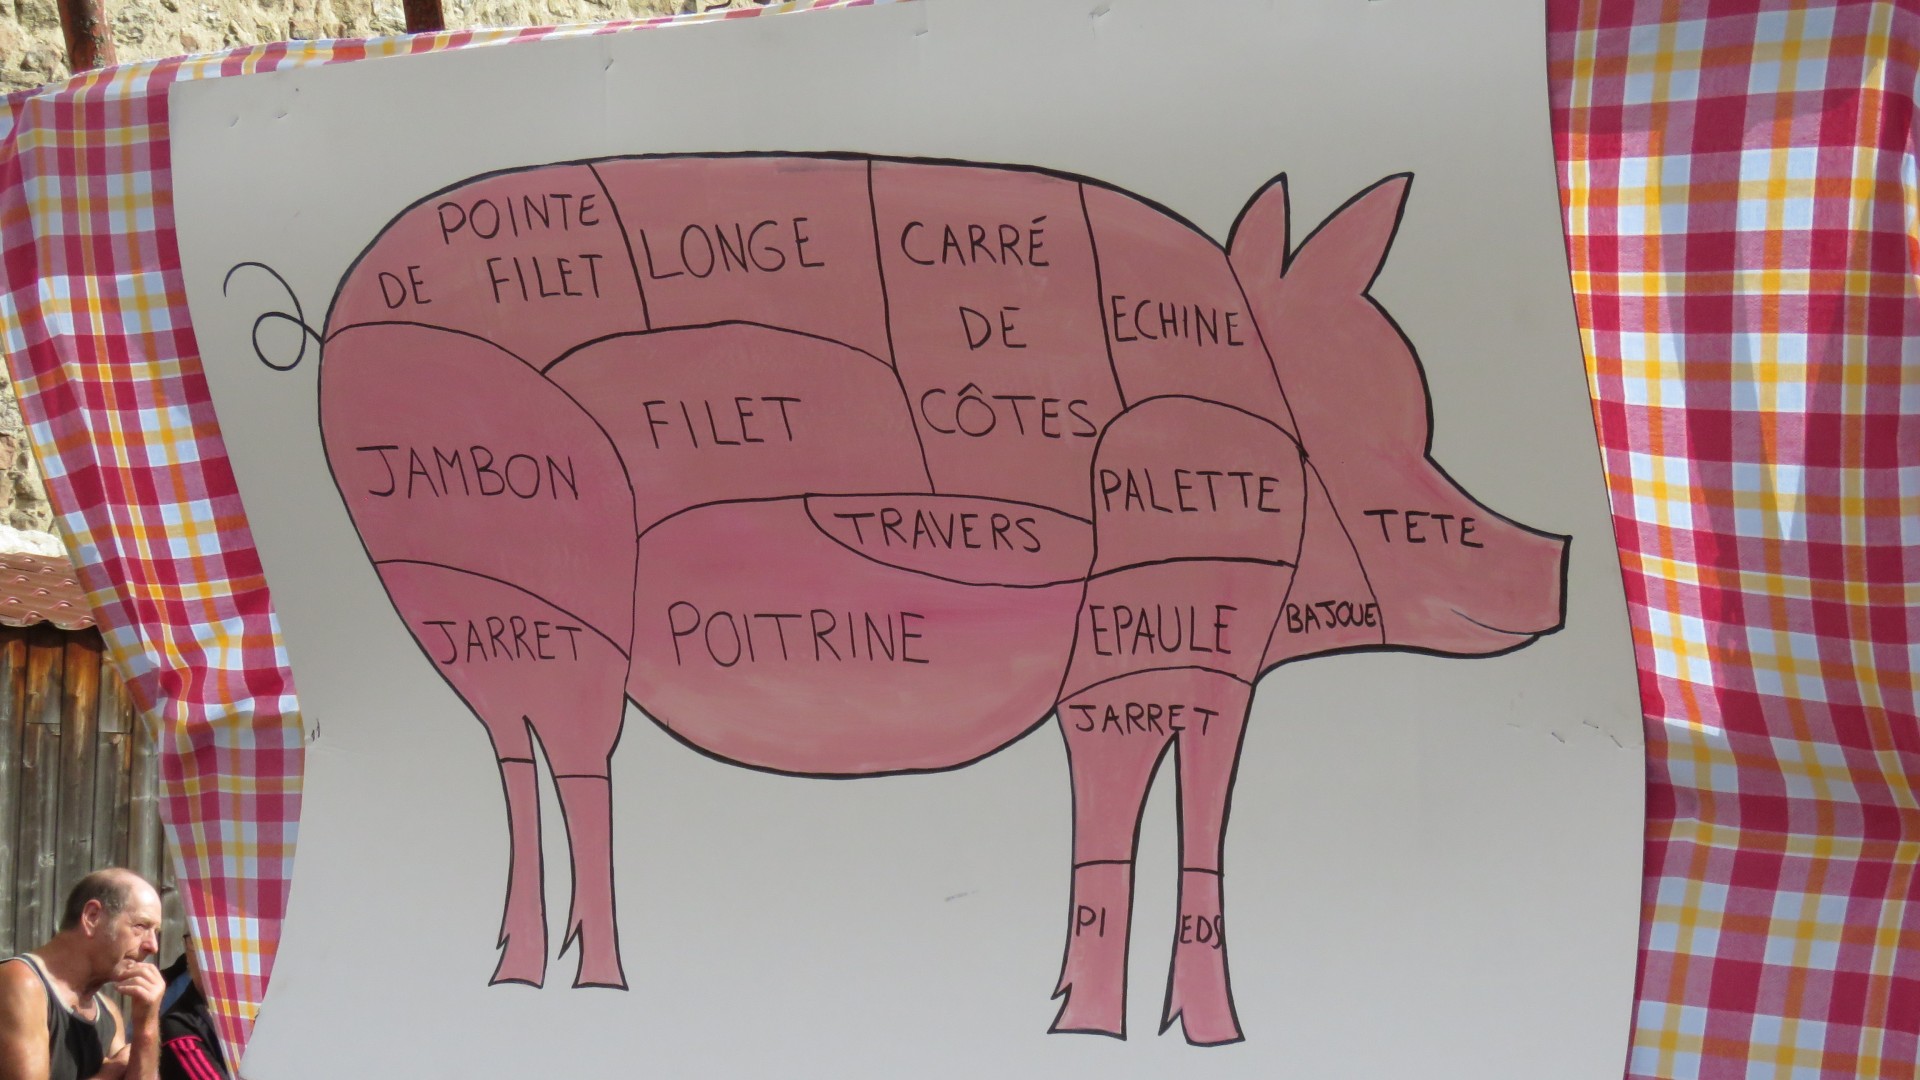 POINTE
DE FILET
LONGE
CARRÉ
DE
CÔTES
ECHINE
FILET
JAMBON
PALETTE
TRAVERS
TETE
JARRET
POITRINE
EPAULE
BAJOUE
JARRET
PI EDS